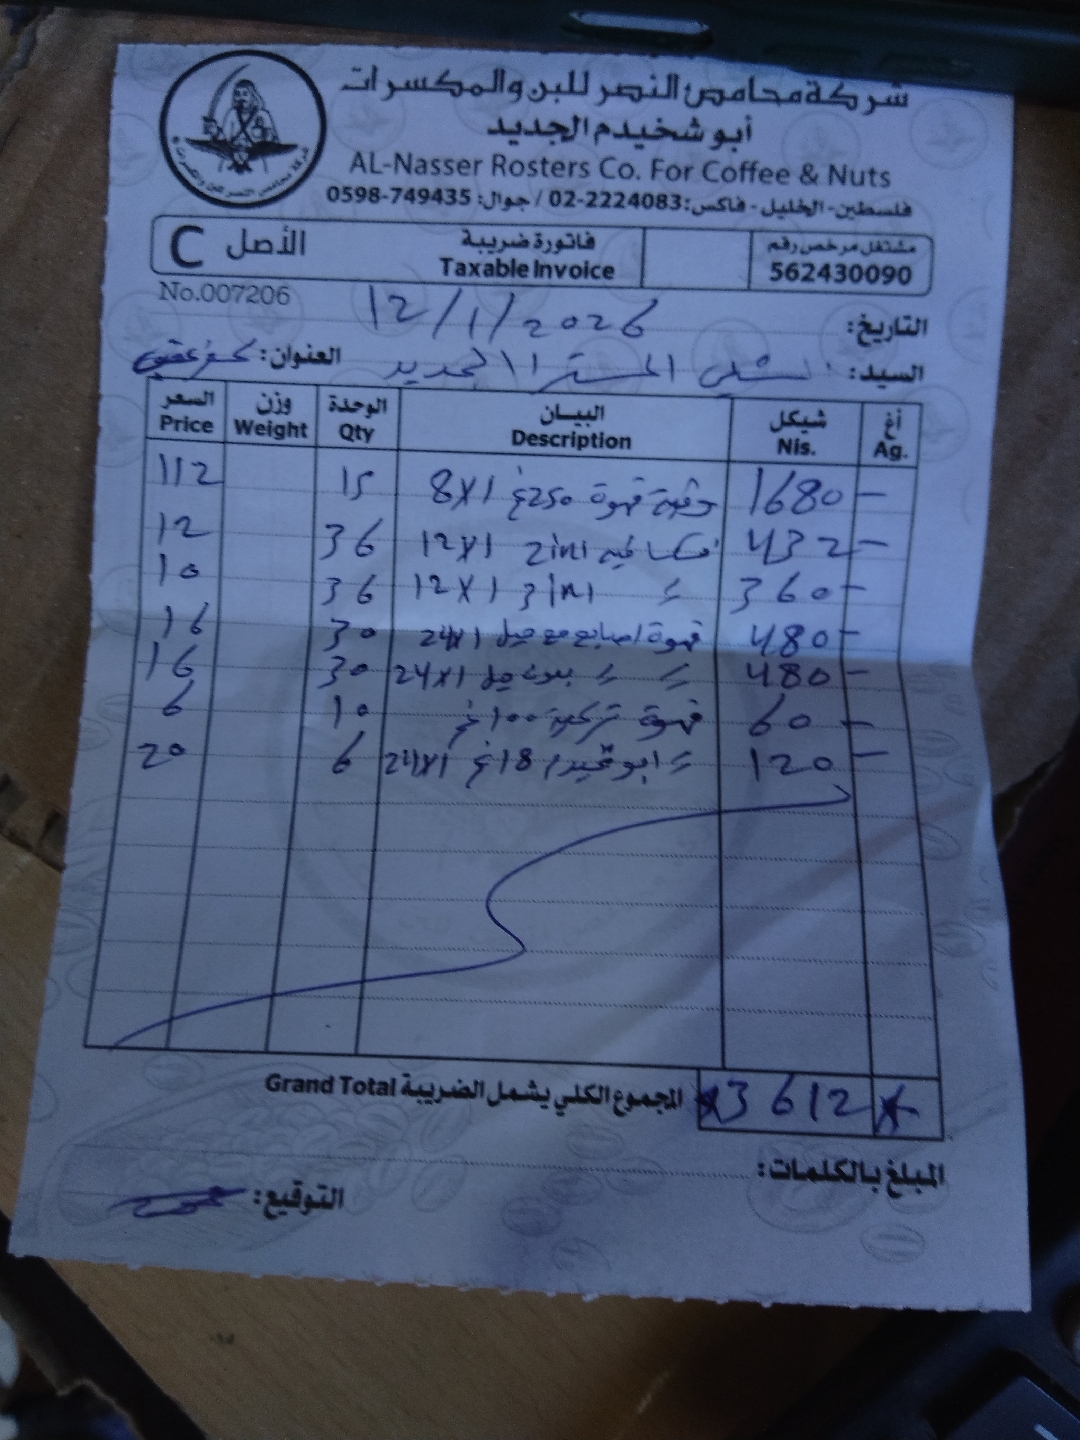 شركة محامص النصر للبن والمكسرات
أبو شخيدم الجديد
AL-Nasser Rosters Co. For Coffee & Nuts
فلسطين-الخليل - فاكس:02-2224083 / جوال: 0598-749435
مشتغل مرخص رقم
562430090
فاتورة ضريبة
Taxable Invoice
الأصل C
No.007206
التاريخ: 12/1/2026
السيد: الجديد العنوان:
أغ شيكل البيـــان الوحدة وزن السعر
Ag. Nis. Description Qty Weight Price
1680 - قهوة 250غ 8X1 15 112
432 - 2in1 12X1 36 12
360 - = 3in1 12X1 36 10
480 - قهوة اصابع مع هيل 24X1 30 16
480 - = = بدون هيل 24X1 30 16
60 - قهوة تركية 100غ 10 6
120 - = ابو شخيدم 18غ 24X1 6 20
المجموع الكلي يشمل الضريبة Grand Total 3612
المبلغ بالكلمات:
التوقيع: